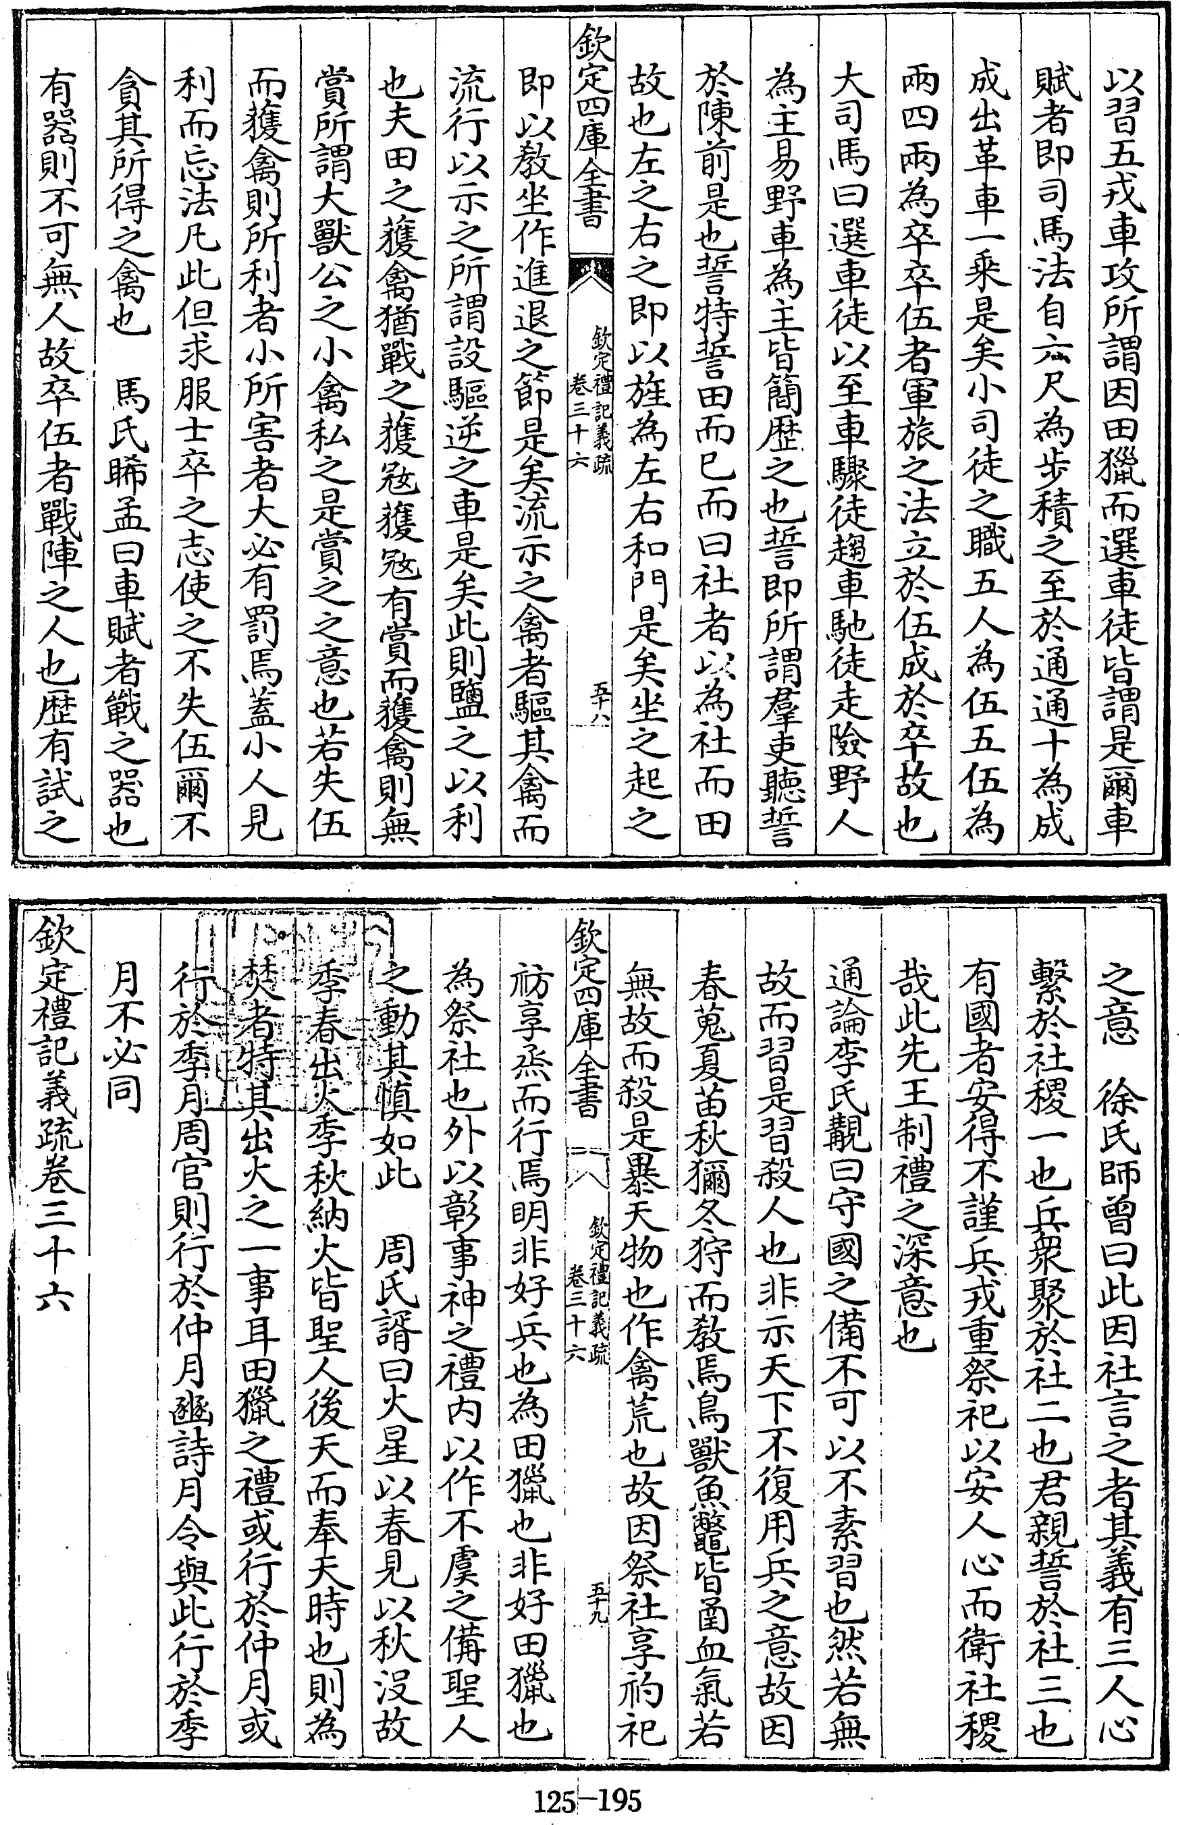 以習五戎車攻所謂因田獵而選車徒皆謂是爾車
賦者即司馬法自六尺為步積之至於通通十為成
成出革車一乘是矣小司徒之職五人為伍五伍為
兩四兩為卒卒伍者軍旅之法立於伍成於卒故也
大司馬曰選車徒以至車驟徒趨車馳徒走險野人
為主易野車為主皆簡歴之也誓即所謂羣吏聽誓
於陳前是也誓特誓田而已而曰社者以為社而田
故也左之右之即以旌為左右和門是矣坐之起之
欽定四庫全書
欽定禮記義疏
卷三十六
五十八
即以教坐作進退之節是矣流示之禽者驅其禽而
流行以示之所謂設驅逆之車是矣此則鹽之以利
也夫田之獲禽猶戰之獲冦獲冦有賞而獲禽則無
賞所謂大獸公之小禽私之是賞之之意也若失伍
而獲禽則所利者小所害者大必有罰焉葢小人見
利而忘法凡此但求服士卒之志使之不失伍爾不
貪其所得之禽也 馬氏睎孟曰車賦者戰之器也
有器則不可無人故卒伍者戰陣之人也歴有試之
之意 徐氏師曾曰此因社言之者其義有三人心
繫於社稷一也兵衆聚於社二也君親誓於社三也
有國者安得不謹兵戎重祭祀以安人心而衛社稷
哉此先王制禮之深意也
通論李氏覯曰守國之備不可以不素習也然若無
故而習是習殺人也非示天下不復用兵之意故因
春蒐夏苗秋獮冬狩而教焉鳥獸魚鼈皆函血氣若
無故而殺是暴天物也作禽荒也故因祭社享礿祀
欽定四庫全書
欽定禮記義疏
卷三十六
五十九
祊享烝而行焉明非好兵也為田獵也非好田獵也
為祭社也外以彰事神之禮内以作不虞之備聖人
之動其慎如此 周氏諝曰火星以春見以秋沒故
季春出火季秋納火皆聖人後天而奉天時也則為
焚者特其出火之一事耳田獵之禮或行於仲月或
行於季月周官則行於仲月豳詩月令與此行於季
月不必同
欽定禮記義疏卷三十六
125-195